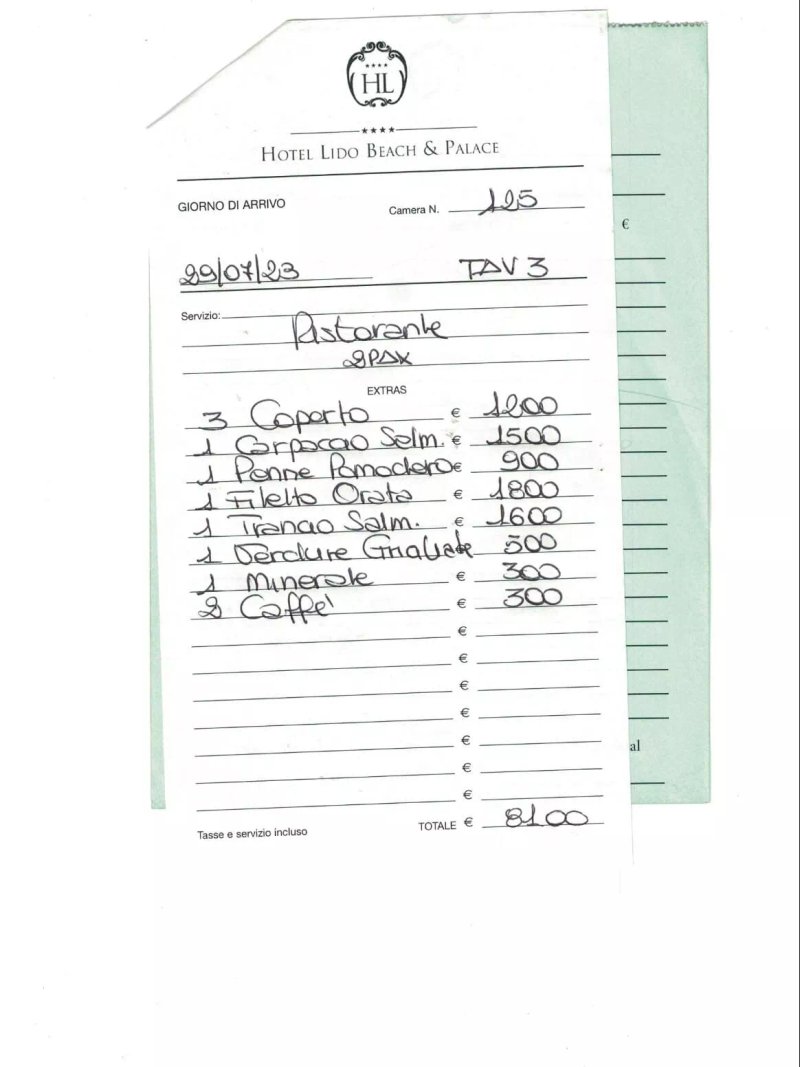 HL
HOTEL LIDO BEACH & PALACE
GIORNO DI ARRIVO
Camera N. 125
29/07/23 TAV 3
Servizio:
Ristorante
2PAX
EXTRAS
3 Coperto € 1200
1 Carpaccio Salm. € 1500
1 Penne Pomodoro € 900
1 Filetto Orata € 1800
1 Trancio Salm. € 1600
1 Verdure Grigliate 500
1 Minerale € 300
2 Caffè € 300
€
€
€
€
€
€
€
Tasse e servizio incluso
TOTALE € 8100
€
al